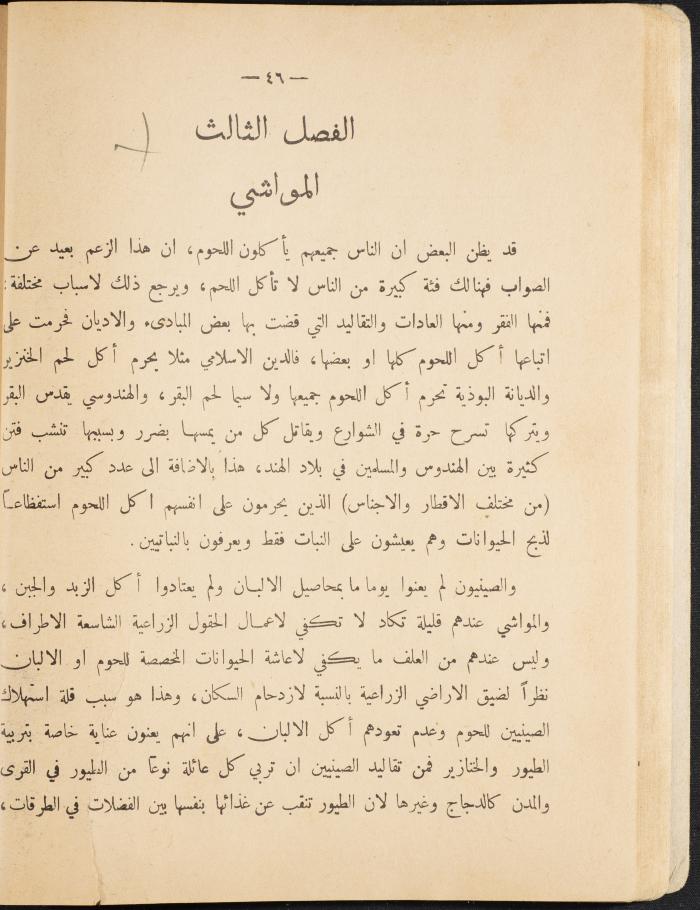 — ٤٦ —
الفصل الثالث
المواشي
قد يظن البعض ان الناس جميعهم يأكلون اللحوم، ان هذا الزعم بعيد عن
الصواب فهنالك فئة كبيرة من الناس لا تأكل اللحم، ويرجع ذلك لاسباب مختلفة:
فمنها الفقر ومنها العادات والتقاليد التي قضت بها بعض المبادىء والاديان فحرمت على
اتباعها أكل اللحوم كلها او بعضها، فالدين الاسلامي مثلا يحرم أكل لحم الخنزير
والديانة البوذية تحرم أكل اللحوم جميعها ولا سيما لحم البقر، والهندوسي يقدس البقر
ويتركها تسرح حرة في الشوارع ويقاتل كل من يمسها بضرر وبسببها تنشب فتن
كثيرة بين الهندوس والمسلمين في بلاد الهند، هذا بالاضافة الى عدد كبير من الناس
(من مختلف الاقطار والاجناس) الذين يحرمون على انفسهم اكل اللحوم استفظاعاً
لذبح الحيوانات وهم يعيشون على النبات فقط ويعرفون بالنباتيين.
والصينيون لم يعنوا يوما ما بمحاصيل الالبان ولم يعتادوا أكل الزبد والجبن،
والمواشي عندهم قليلة تكاد لا تكفي لاعمال الحقول الزراعية الشاسعة الاطراف،
وليس عندهم من العلف ما يكفي لاعاشة الحيوانات المخصصة للحوم او الالبان
نظراً لضيق الاراضي الزراعية بالنسبة لازدحام السكان، وهذا هو سبب قلة استهلاك
الصينيين للحوم وعدم تعودهم أكل الالبان، على انهم يعنون عناية خاصة بتربية
الطيور والخنازير فمن تقاليد الصينيين ان تربي كل عائلة نوعاً من الطيور في القرى
والمدن كالدجاج وغيرها لان الطيور تنقب عن غذائها بنفسها بين الفضلات في الطرقات،